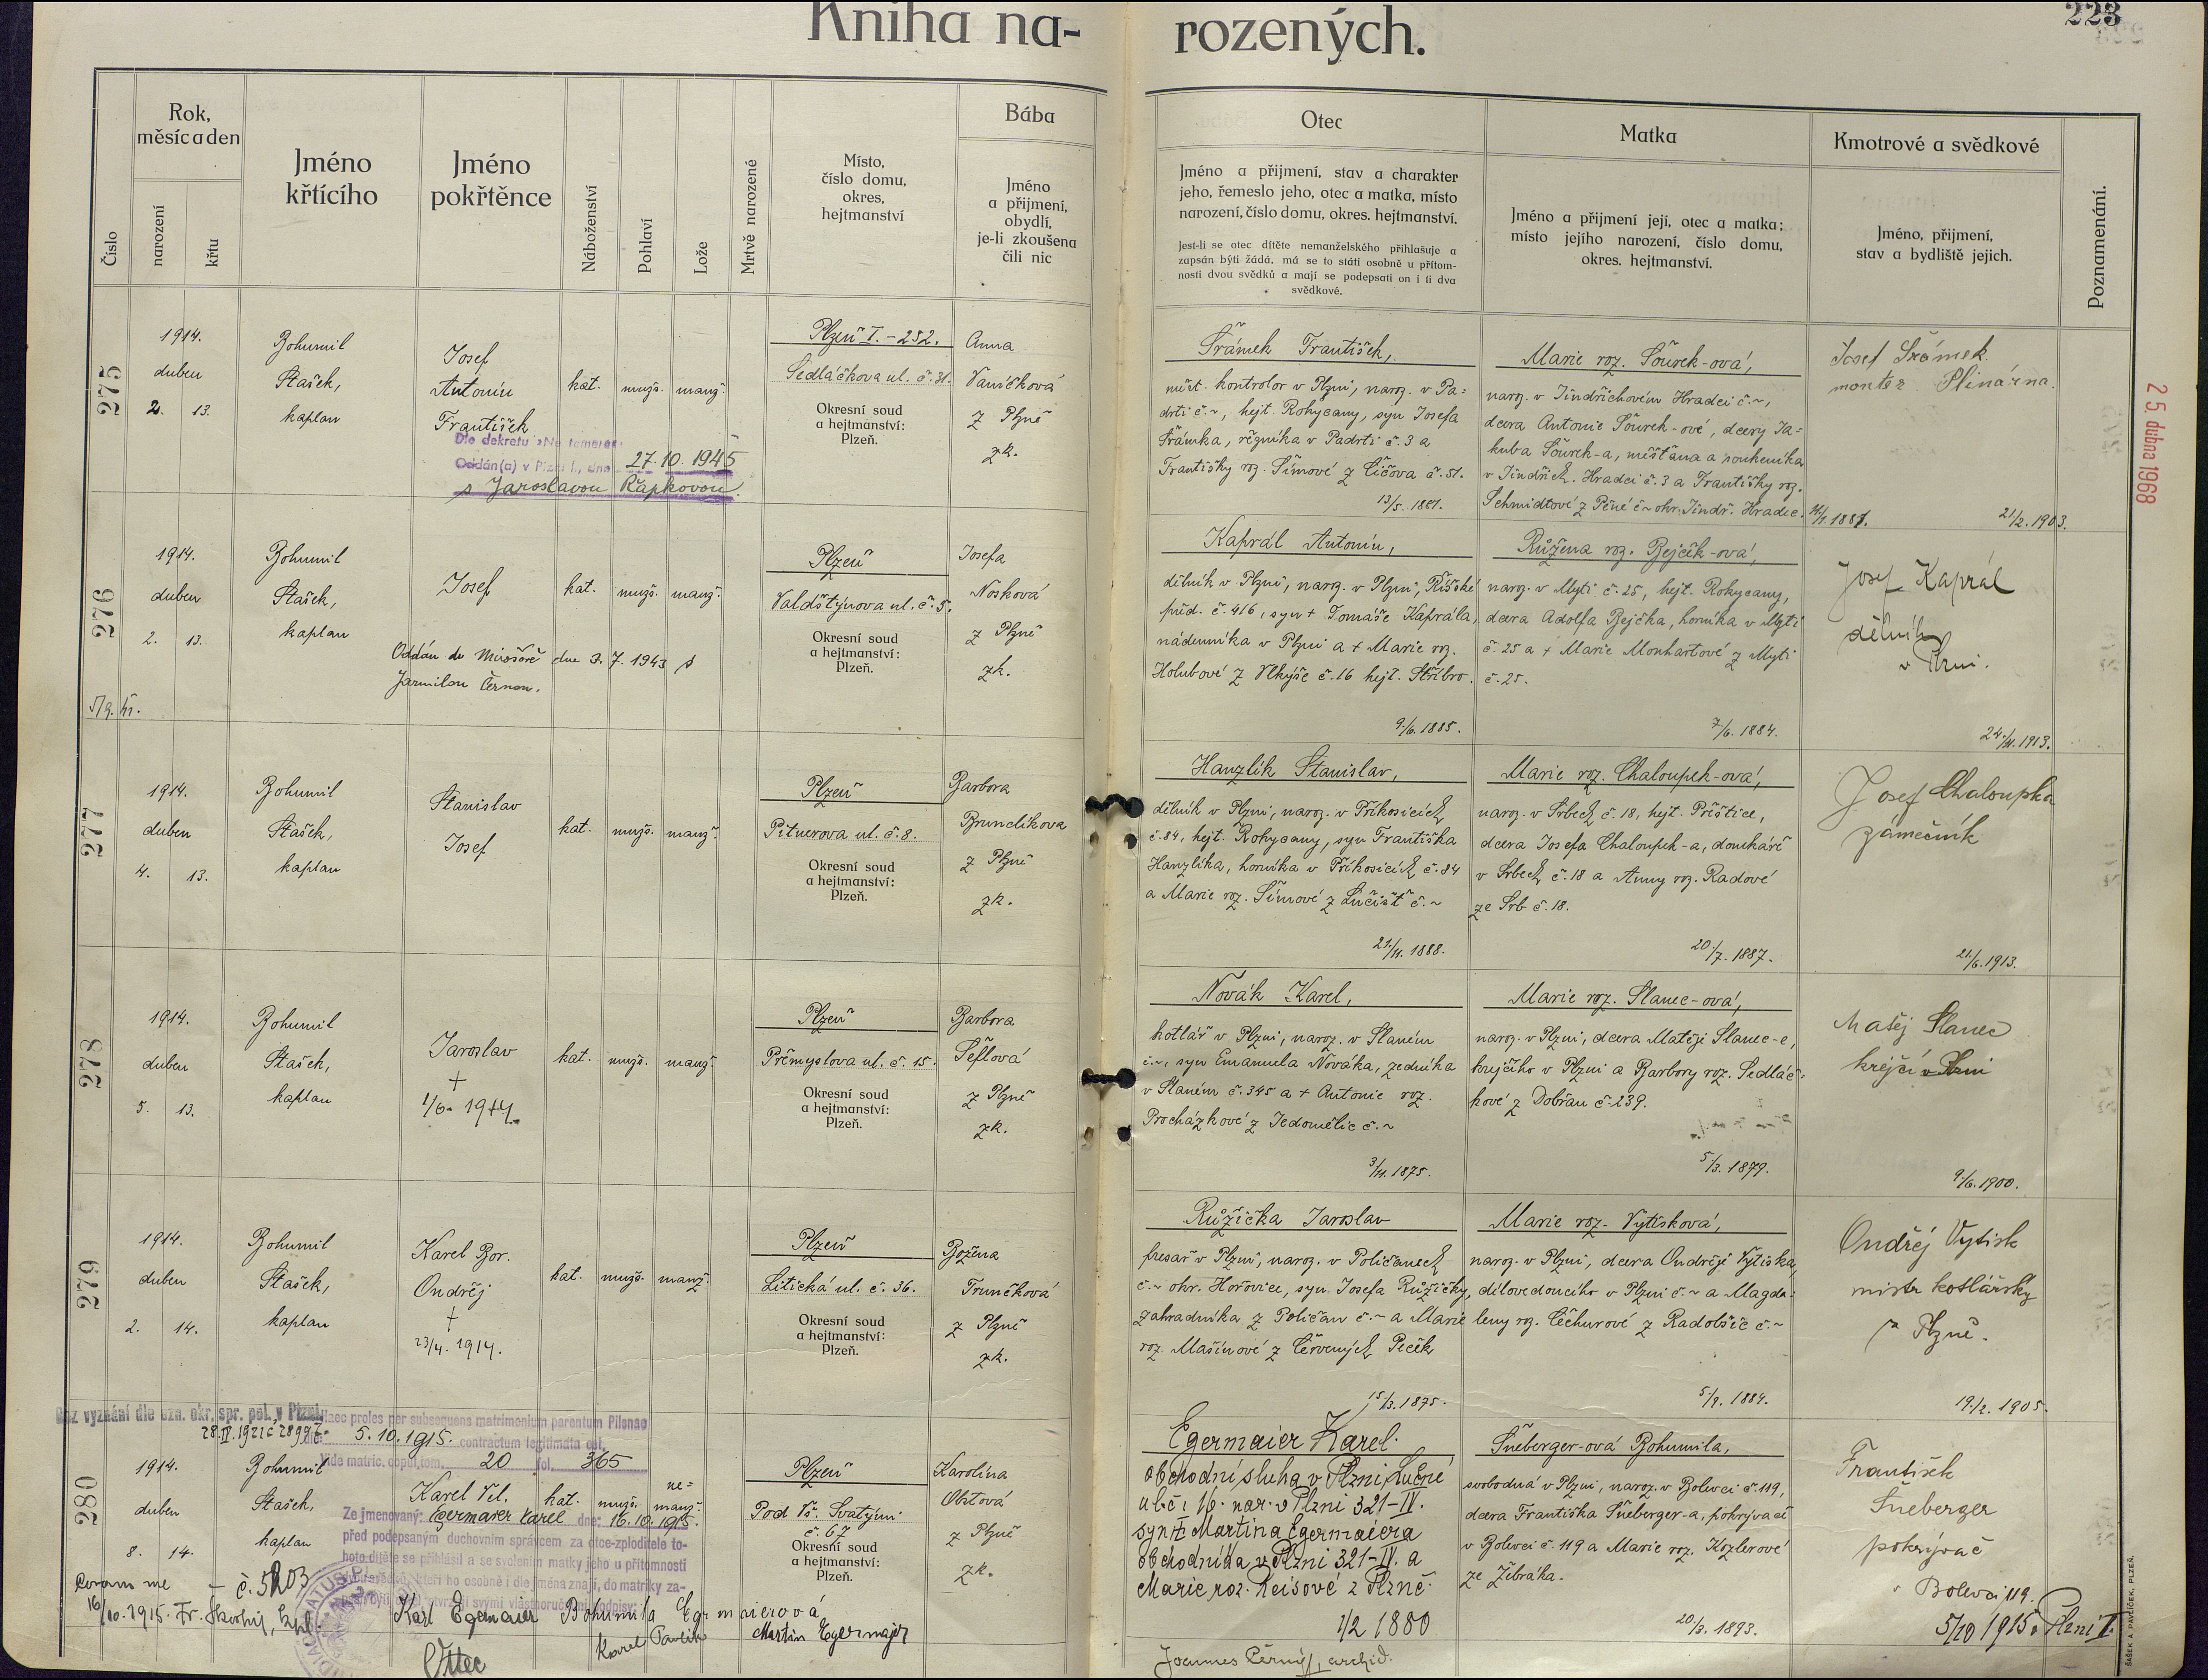 Kniha na- rozených.
223
Číslo
Rok,
měsíc a den
narození
křtu
Jméno
křtícího
Jméno
pokřtěnce
Náboženství
Pohlaví
Lože
Mrtvě narozené
Místo,
číslo domu,
okres,
hejtmanství
Bába
Jméno
a přijmení,
obydlí,
je-li zkoušena
čili nic
Otec
Jméno a přijmení, stav a charakter
jeho, řemeslo jeho, otec a matka, místo
narození, číslo domu, okres. hejtmanství.
Jest-li se otec dítěte nemanželského přihlašuje a
zapsán býti žádá, má se to státi osobně u přítom-
nosti dvou svědků a mají se podepsati on i ti dva
svědkové.
Matka
Jméno a přijmení její, otec a matka;
místo jejího narození, číslo domu,
okres. hejtmanství.
Kmotrové a svědkové
Jméno, přijmení,
stav a bydliště jejich.
Poznamenání.
275
1914.
duben
2. 13.
Bohumil
Stašek,
kaplan
Josef
Antonín
František
kat. mužs. manž.
Dle dekretu »Ne temere«
Oddán(a) v Plzni I., dne 27. 10. 1945
s Jaroslavou Řapkovou
Plzeň I. - 252.
Sedláčkova ul. č. 31.
Okresní soud
a hejtmanství:
Plzeň.
Anna
Vaníčková
z Plzně
zk.
Šrámek František,
měst. kontrolor v Plzni, naroz. v Pa-
drti č. ~, hejt. Rokycany, syn Josefa
Šrámka, řezníka v Padrti č. 3 a
Františky roz. Šímové z Číčova č. 51.
13/5. 1881.
Marie roz. Šourek-ová,
naroz. v Jindřichovém Hradci č. ~,
dcera Antonie Šourek-ové, dcery Ja-
kuba Šourek-a, měšťana a soukeníka
v Jindřich. Hradci č. 3 a Františky roz.
Schmidtové z Pěné č ~ okr. Jindř. Hradec.
Josef Šrámek
montér Plinárna.
21/2. 1903.
25. dubna 1968
276
1914.
duben
2. 13.
Bohumil
Stašek,
kaplan
Josef
kat. mužs. manž.
Oddán ve Mirošově dne 3. 7. 1943 s
Jarmilou Černou.
Plzeň
Valdštýnova ul. č. 5.
Okresní soud
a hejtmanství:
Plzeň.
Josefa
Nosková
z Plzně
zk.
Kaprál Antonín,
dělník v Plzni, naroz. v Plzni, Říšské
před. č. 416, syn + Tomáše Kaprála,
nádenníka v Plzni a + Marie roz.
Holubové z Vlkýše č. 16 hejt. Stříbro.
9./6. 1885.
Růžena roz. Bejček-ová,
naroz. v Mýti č. 25, hejt. Rokycany,
dcera Adolfa Bejčka, horníka v Mýti
č. 25 a + Marie Monhartové z Mýti
č. 25.
7/6. 1884.
Josef Kaprál
dělník
v Plzni.
24./11. 1913.
277
1914.
duben
4. 13.
Bohumil
Stašek,
kaplan
Stanislav
Josef
kat. mužs. manž.
Plzeň
Pitnerova ul. č. 8.
Okresní soud
a hejtmanství:
Plzeň.
Barbora
Brunclíkova
z Plzně
zk.
Hanzlík Stanislav,
dělník v Plzni, naroz. v Příkosicích
č. 84, hejt. Rokycany, syn Františka
Hanzlíka, horníka v Příkosicích č. 84
a Marie roz. Šímové z Lučišť č. ~
21/11. 1888.
Marie roz. Chaloupek-ová,
naroz. v Srbech č. 18, hejt. Přeštice,
dcera Josefa Chaloupek-a, domkáře
v Srbech č. 18 a Anny roz. Radové
ze Srb č. 18.
20./7. 1887.
Josef Chaloupka
zámečník
21./6. 1913.
278
1914.
duben
5. 13.
Bohumil
Stašek,
kaplan
Jaroslav
+
1/6. 1914.
kat. mužs. manž.
Plzeň
Přemyslova ul. č. 15.
Okresní soud
a hejtmanství:
Plzeň.
Barbora
Šeflová
z Plzně
zk.
Novák Karel,
kotlář v Plzni, naroz. v Slaném
č. ~, syn Emanuela Nováka, zedníka
v Slaném č. 345 a + Antonie roz.
Procházkové z Jedomělic č. ~
3/11. 1875.
Marie roz. Slanec-ová,
naroz. v Plzni, dcera Matěje Slanec-e,
krejčího v Plzni a Barbory roz. Sedláč-
kové z Dobřan č. 239.
5./3. 1879.
Matěj Slanec
krejčí v Plzni
9./6. 1900.
279
1914.
duben
2. 14.
Bohumil
Stašek,
kaplan
Karel Bor.
Ondřej
+
23/4. 1914.
kat. mužs. manž.
Plzeň
Litická ul. č. 36.
Okresní soud
a hejtmanství:
Plzeň.
Božena
Trunečková
z Plzně
zk.
Růžička Jaroslav
pesař v Plzni, naroz. v Poličanech
č. ~ okr. Hořovice, syn Josefa Růžičky,
zahradníka z Poličan č. ~ a Marie
roz. Mašínové z Červených Peček
15./3. 1875.
Marie roz. Vytisková,
naroz. v Plzni, dcera Ondřeje Vytiska,
dílovedoucího v Plzni č. ~ a Magda-
leny roz. Čechurové z Radobšic č. ~
5/9. 1884.
Ondřej Vytisk
mistr kotlářský
z Plzně.
19./2. 1905.
Bez vyznání dle ozn. okr. spr. pol. v Plzni
28. IV. 1921 č 28997.
Haec proles per subsequens matrimonium parentum Pilsnae
die 5. 10. 1915. contractum legitimata est.
Vide matric. copul. tom. 20 fol. 365
280
1914.
duben
8. 14.
Bohumil
Stašek,
kaplan
Karel Vil.
kat. mužs. ne-
manž.
Ze jmenovaný: Egermaier Karel dne: 16. 10. 1915.
před podepsaným duchovním správcem za otce-zploditele to-
hoto dítěte se přihlásil a se svolením matky jeho u přítomnosti
svědků, kteří ho osobně i dle jména znají, do matriky za-
Plzeň
Pod Vš. Svatými
č. 67
Okresní soud
a hejtmanství:
Plzeň.
Karolina
z Plzně
zk.
Egermaier Karel.
obchodní sluha v Plzni, Lučné
ul. č. 16. nar. v Plzni 321-IV.
syn + Martina Egermaiera
obchodníka v Plzni 321-IV. a
Marie roz. Reisové z Plzně.
1/2 1880
Šneberger-ová Bohumila,
svobodná v Plzni, naroz. v Bolevci č. 119,
dcera Františka Šneberger-a, pokrývače
v Bolevci č. 119 a Marie roz. Kozlerové
ze Žebráka.
20/3. 1893.
František
Šneberger
pokrývač
v Bolevci 119.
5/10 1915 v Plzni I.
Coram me – č. 5203
16/10. 1915. Fr.
Karl Egermaier Bohumila Egermaierová
Karel Pavlík Martin Egermajer
Otec
Joannes Černý, archid.
ŠAŠEK A PAVLÍČEK, PLZEŇ.